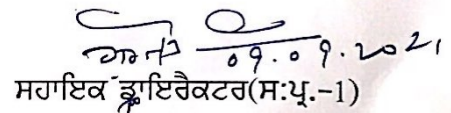 09.09.2021
ਸਹਾਇਕ ਡਾਇਰੈਕਟਰ(ਸ:ਪ੍ਰ.-1)